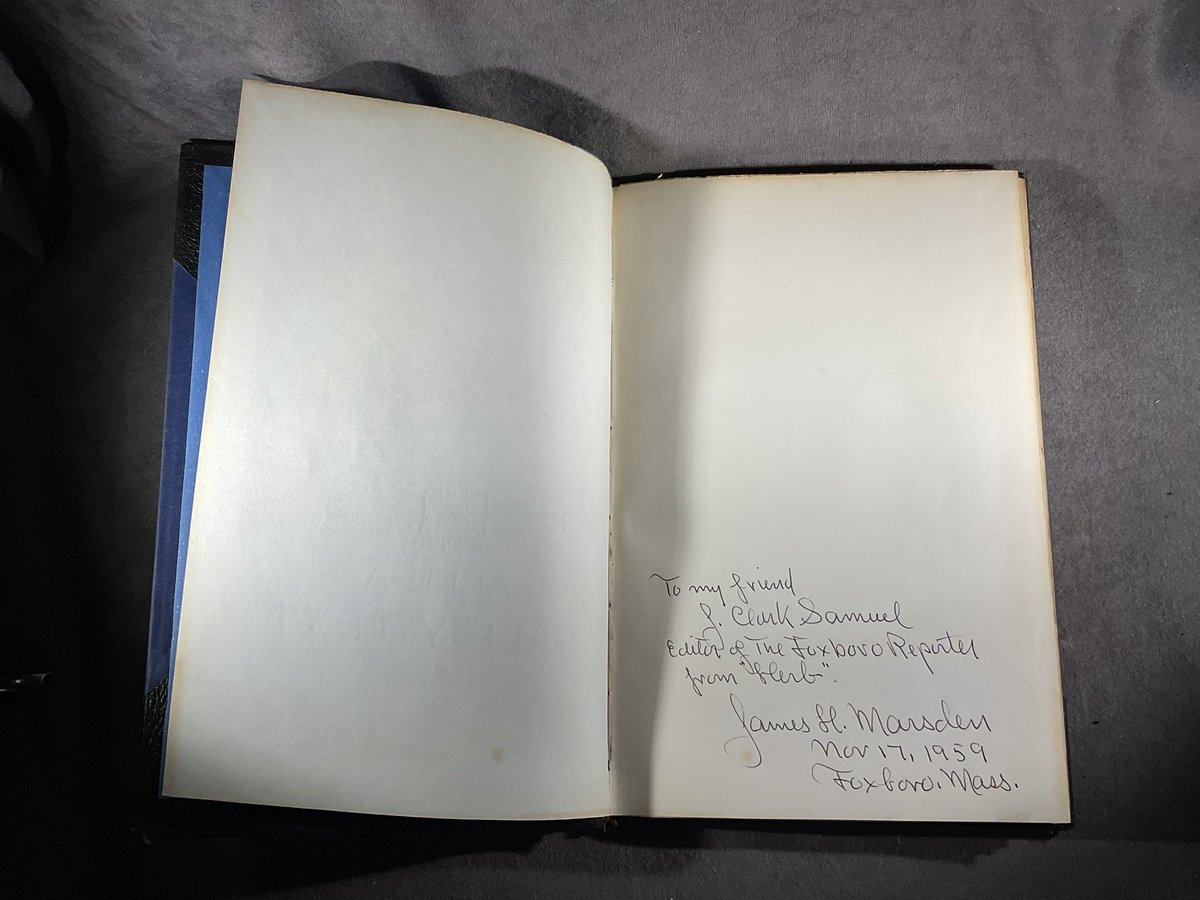 To my friend
J. Clark Samuel
Editor of The Foxboro Reporter
from "Herb".
James H. Marsden
Nov 17, 1959
Foxboro. Mass.